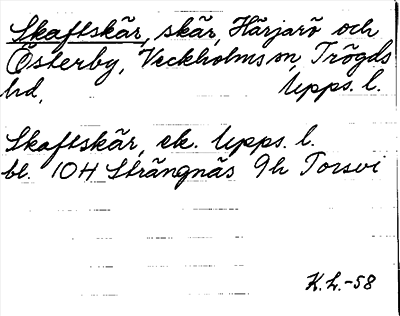 Skaftskär, skär, Härjarö och
Österby, Veckholms sn, Trögds
hd, Upps. l.
Skaftskär, ek. Upps. l.
bl. 10H Strängnäs 9h Torsvi
K.L.-58